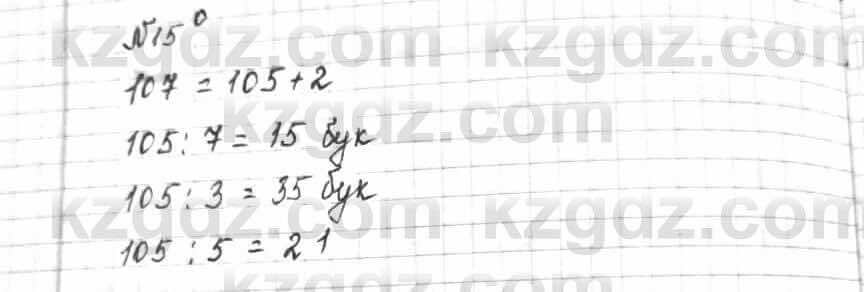 №15⁰
107 = 105 + 2
105 : 7 = 15 бук
105 : 3 = 35 бук
105 : 5 = 21
kzgdz.com kzgdz.com
kzgdz.com
kzgdz.com kzgdz.com